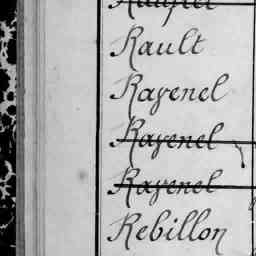 Rault
Rayenel
Rayenel
Rayenel
Rebillon